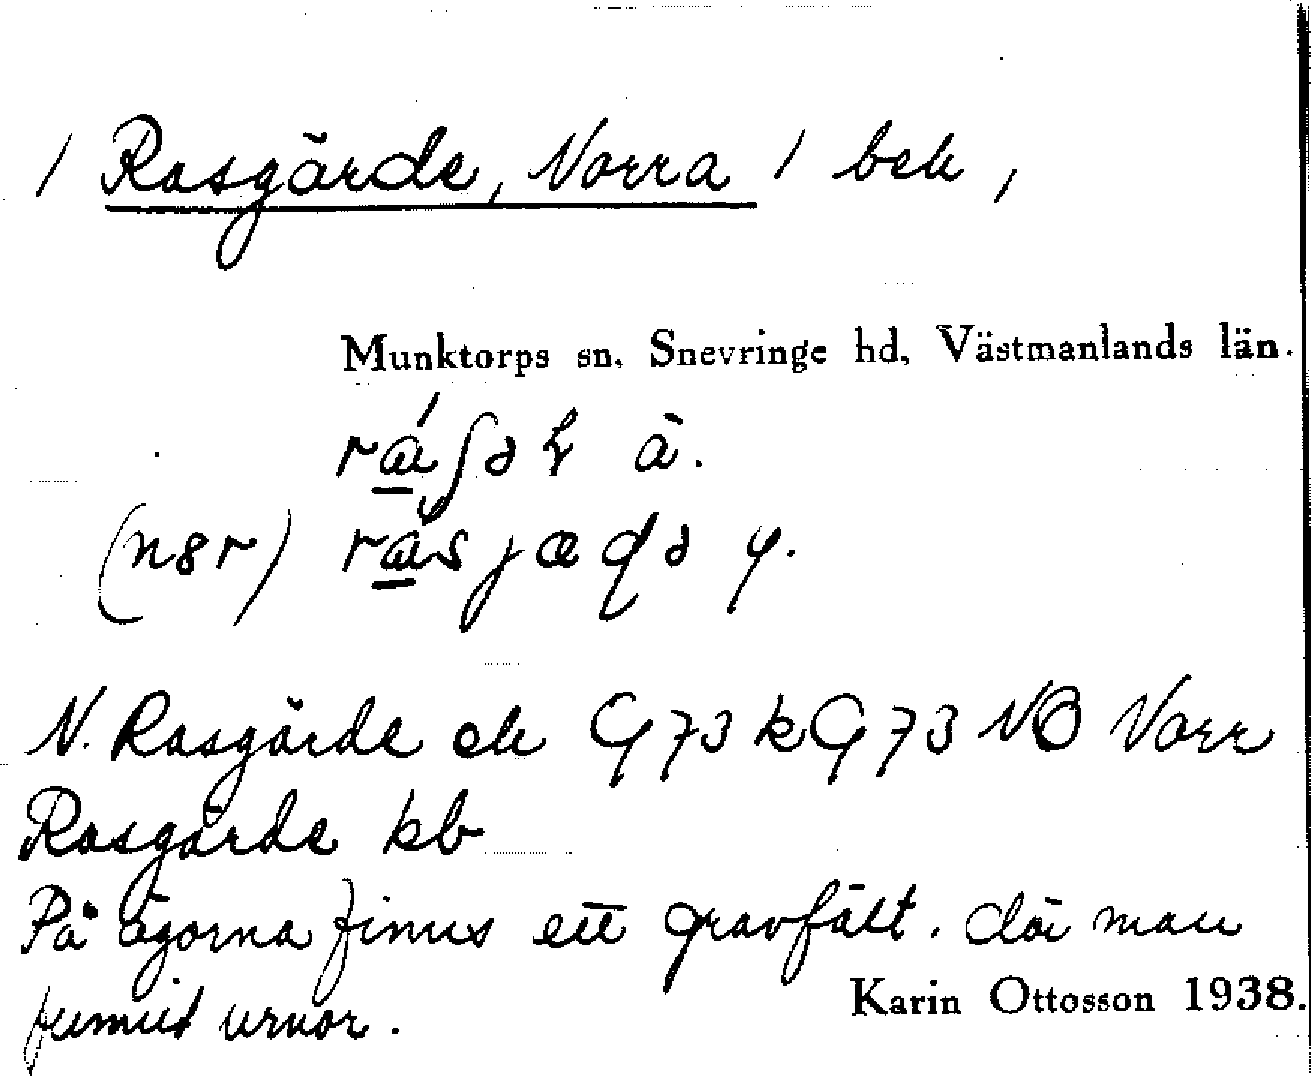 / Rasgärde, Norra / bek,
Munktorps sn, Snevringe hd, Västmanlands län.
ä.
y.
N. Rasgärde ek G 73 k G 73 NB Norr
Rasgärde kb
På ägorna finns ett gravfält, där man
funnit urnor.
Karin Ottosson 1938.